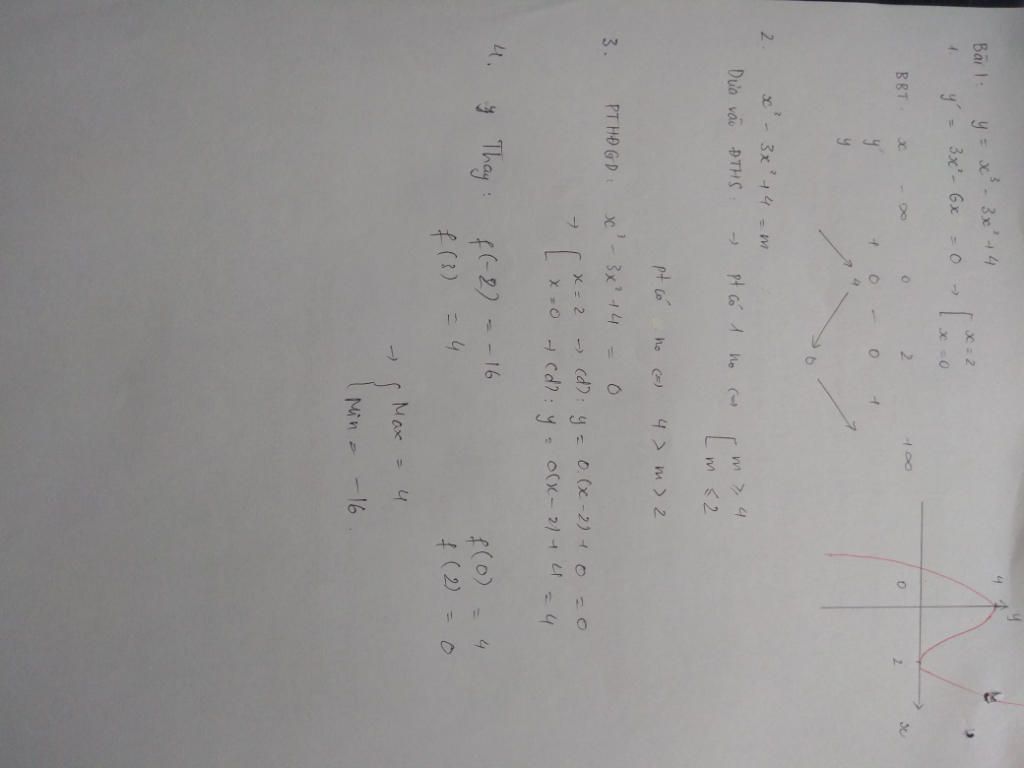 Bài 1: y = x³ - 3x² + 4
1 y' = 3x² - 6x = 0 → [ x = 2
x = 0
BBT: x - ∞ 0 2 + ∞
y' + 0 - 0 +
y 4 0
4 y
0 2 x
2. x² - 3x² + 4 = m
Dựa vào ĐTHS: → pt có 1 no <=> [ m ≥ 4
m ≤ 2
pt có no <=> 4 > m > 2
3. PTHĐGĐ: x³ - 3x² + 4 = 0
→ [ x = 2 → (d): y = 0(x - 2) + 0 = 0
x = 0 → (d): y = 0(x - 2) + 4 = 4
4. y Thay: f(-2) = -16 f(0) = 4
f(3) = 4 f(2) = 0
→ { Max = 4
Min = -16.